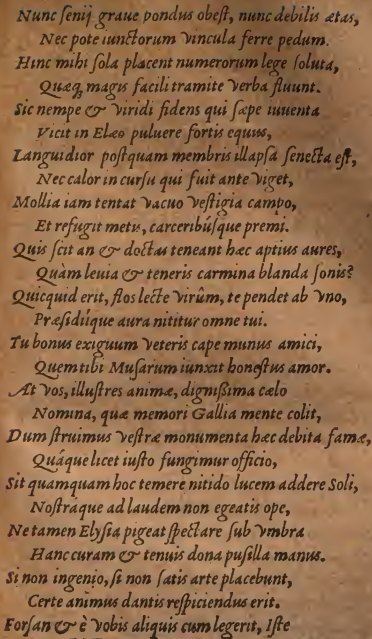 Nunc senij graue pondus obest, nunc debilis ætas,
Nec pote iunctorum vincula ferre pedum.
Hinc mihi sola placent numerorum lege soluta,
Quæq; magis facili tramite verba fluunt.
Sic nempe & viridi fidens qui sæpe iuuenta
Vicit in Elæo puluere fortis equus,
Languidior postquam membris illapsa senecta est,
Nec calor in cursu qui fuit ante viget,
Mollia iam tentat vacuo vestigia campo,
Et refugit metis, carceribúsque premi.
Quis scit an & doctas teneant hæc aptius aures,
Quàm leuia & teneris carmina blanda sonis?
Quicquid erit, flos lecte virûm, te pendet ab vno,
Præsidiíque aura nititur omne tui.
Tu bonus exiguum veteris cape munus amici,
Quem tibi Musarum iunxit honestus amor.
At vos, illustres animæ, dignißima cælo
Nomina, quæ memori Gallia mente colit,
Dum struimus vestræ monumenta hæc debita famæ,
Quáque licet iusto fungimur officio,
Sit quamquam hoc temere nitido lucem addere Soli,
Nostraque ad laudem non egeatis ope,
Ne tamen Elysia pigeat spectare sub vmbra
Hanc curam & tenuis dona pusilla manus.
Si non ingenio, si non satis arte placebunt,
Certe animus dantis respiciendus erit.
Forsan & è vobis aliquis cum legerit, Iste